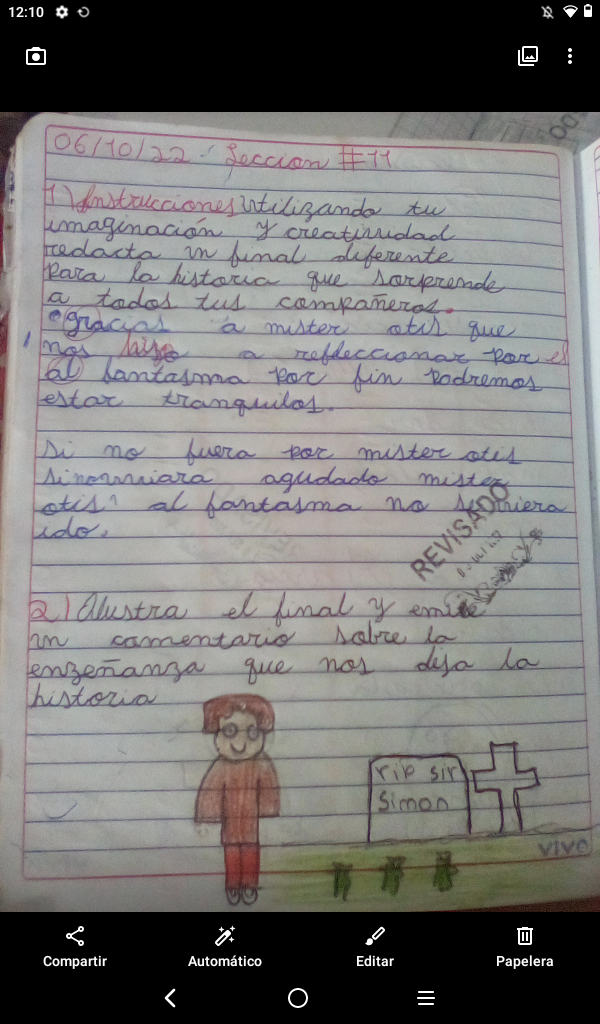 12:10
06/10/22 Leccion #11
1) Instrucciones Utilizando tu
imaginación y creatividad
redacta un final diferente
para la historia que sorprende
a todos tus compañeros.
gracias a mister otis que
nos hiso a refleccionar por el
al fantasma por fin podremos
estar tranquilos.
Si no fuera por mister otis
agudado mister
otis al fantasma no
ido.
REVISADO
2) Ilustra el final y emite
un comentario sobre la
enzeñanza que nos deja la
historia
rip sir
Simon
vivo
Compartir
Automático
Editar
Papelera